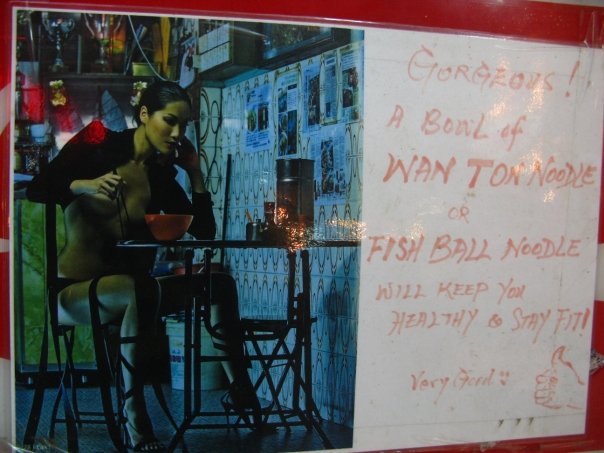 GORGEOUS!
A BOWL of
WAN TON NOODLE
OR
FISH BALL NOODLE
WILL KEEP YOU
HEALTHY & STAY FIT!
Very Good